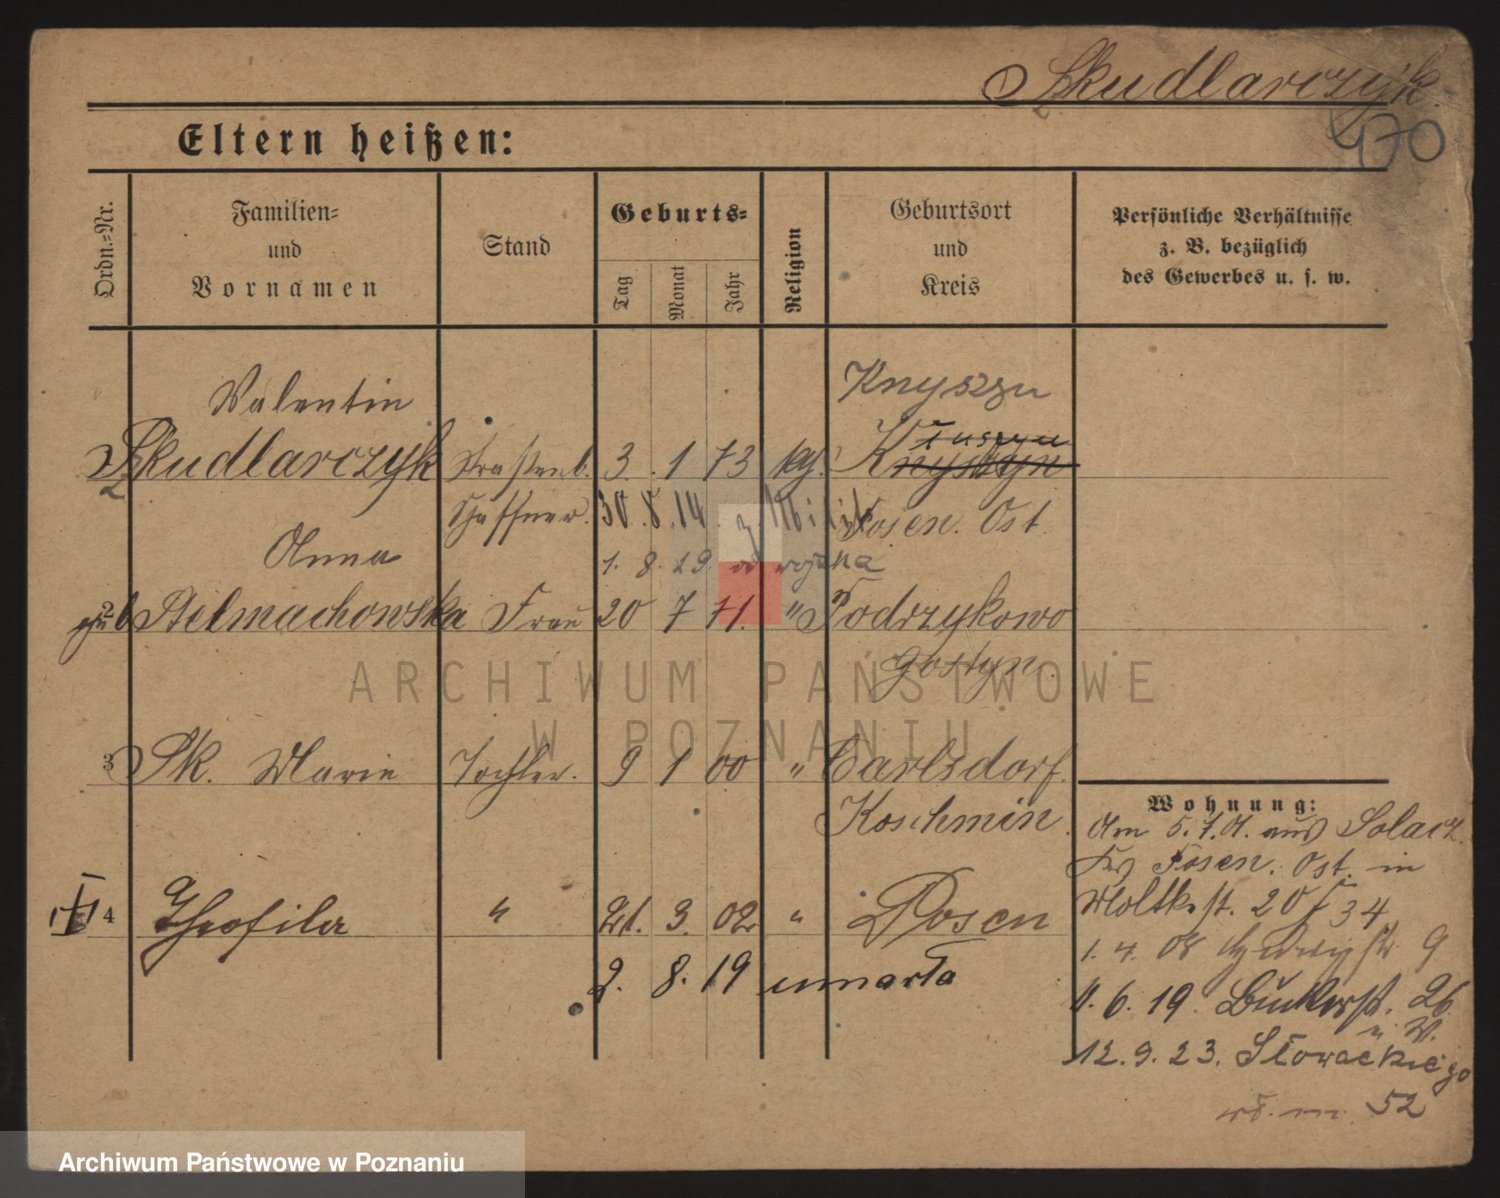 Skudlarczyk
470
Eltern heißen:
Ordn.=Nr.
Familien=
und
Vornamen
Stand
Geburts=
Tag
Monat
Jahr
Religion
Geburtsort
und
Kreis
Persönliche Verhältnisse
z. B. bezüglich
des Gewerbes u. s. w.
Valentin
Knyszyn
Skudlarczyk Straßenb. 3. 1 73 kg.
Schaffner. 30.8.14. z. Posen. Ost.
Anna
1. 8. 19. od wojska
2 geb Stelmachowska Frau 20 7 71. " Podrzykowo
Gostyn.
3 Sk. Marie Tochter. 9 1 00 " Carlsdorf.
Koschmin.
4 Theofila " 21. 3. 02 " Posen
2. 8. 19 umarła
Wohnung:
Am 5.1.01. aus Solacz
Krs Posen. Ost. in
Moltkest. 20 34
1. 4. 08 9
1. 6. 19. 26
u. W.
12. 9. 23. Słowackiego
52
ARCHIWUM PAŃSTWOWE
W POZNANIU
Archiwum Państwowe w Poznaniu